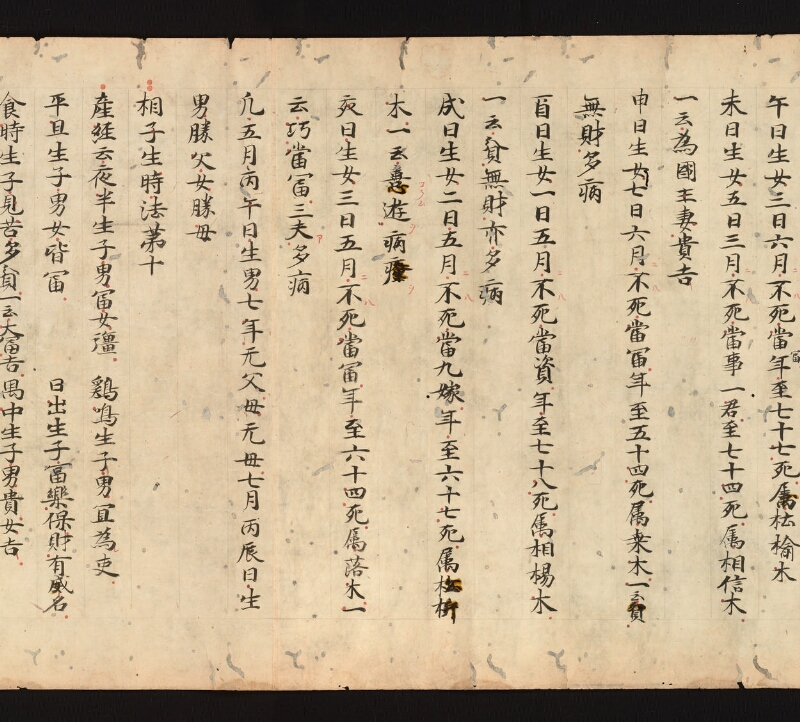 午日生女三日六月不死當富年至七十七死属松楡木
未日生女五日三月不死當事一君至七十四死属相信木
一云為國王妻貴吉
申日生女七日六月不死當冨年至五十四死属桒木一云貧
無財多病
酉日生女一日五月不死當資年至七十八死属相楊木
一云貧無財亦多病
戌日生女二日五月不死當九嫁年至六十七死属
木一云憙遊病
亥日生女三日五月不死當冨年至六十四死属落木一
云巧當冨三夫多病
凢五月丙午日生男七年元父母元母七月丙辰日生
男勝父女勝母
相子生時法第十
産経云夜半生子男冨女彊 鷄鳴生子男冝為吏
平旦生子男女皆冨 日出生子富樂保財有威名
食時生子見苦多貧一云大冨吉禺中生子男貴女吉